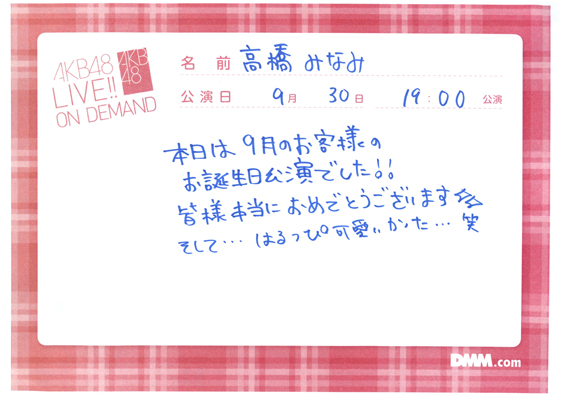 AKB48
LIVE!!
ON DEMAND
AKB
48
名 前 高橋 みなみ
公演日 9月 30日 19:00 公演
本日は9月のお客様の
お誕生日公演でした!!
皆様本当におめでとうございます
そして… はるっぴ可愛いかった… 笑
DMM.com